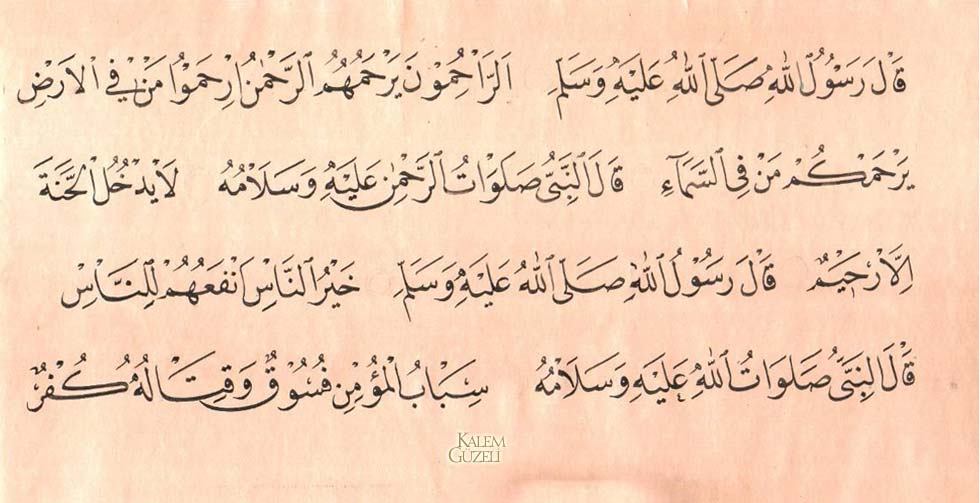 قَالَ رَسُولُ اللهِ صَلَّى اللهُ عَلَيْهِ وَسَلَّمَ الرَّاحِمُونَ يَرْحَمُهُمُ الرَّحْمٰنُ اِرْحَمُوا مَنْ فِي الْاَرْضِ
يَرْحَمْكُمْ مَنْ فِي السَّمَاءِ قَالَ النَّبِيُّ صَلَوَاتُ الرَّحْمٰنِ عَلَيْهِ وَسَلَامُهُ لَا يَدْخُلُ الْجَنَّةَ
اِلَّا رَحِيمٌ قَالَ رَسُولُ اللهِ صَلَّى اللهُ عَلَيْهِ وَسَلَّمَ خَيْرُ النَّاسِ اَنْفَعُهُمْ لِلنَّاسِ
قَالَ النَّبِيُّ صَلَوَاتُ اللهِ عَلَيْهِ وَسَلَامُهُ سِبَابُ الْمُؤْمِنِ فُسُوقٌ وَقِتَالُهُ كُفْرٌ
KALEM
GÜZELİ